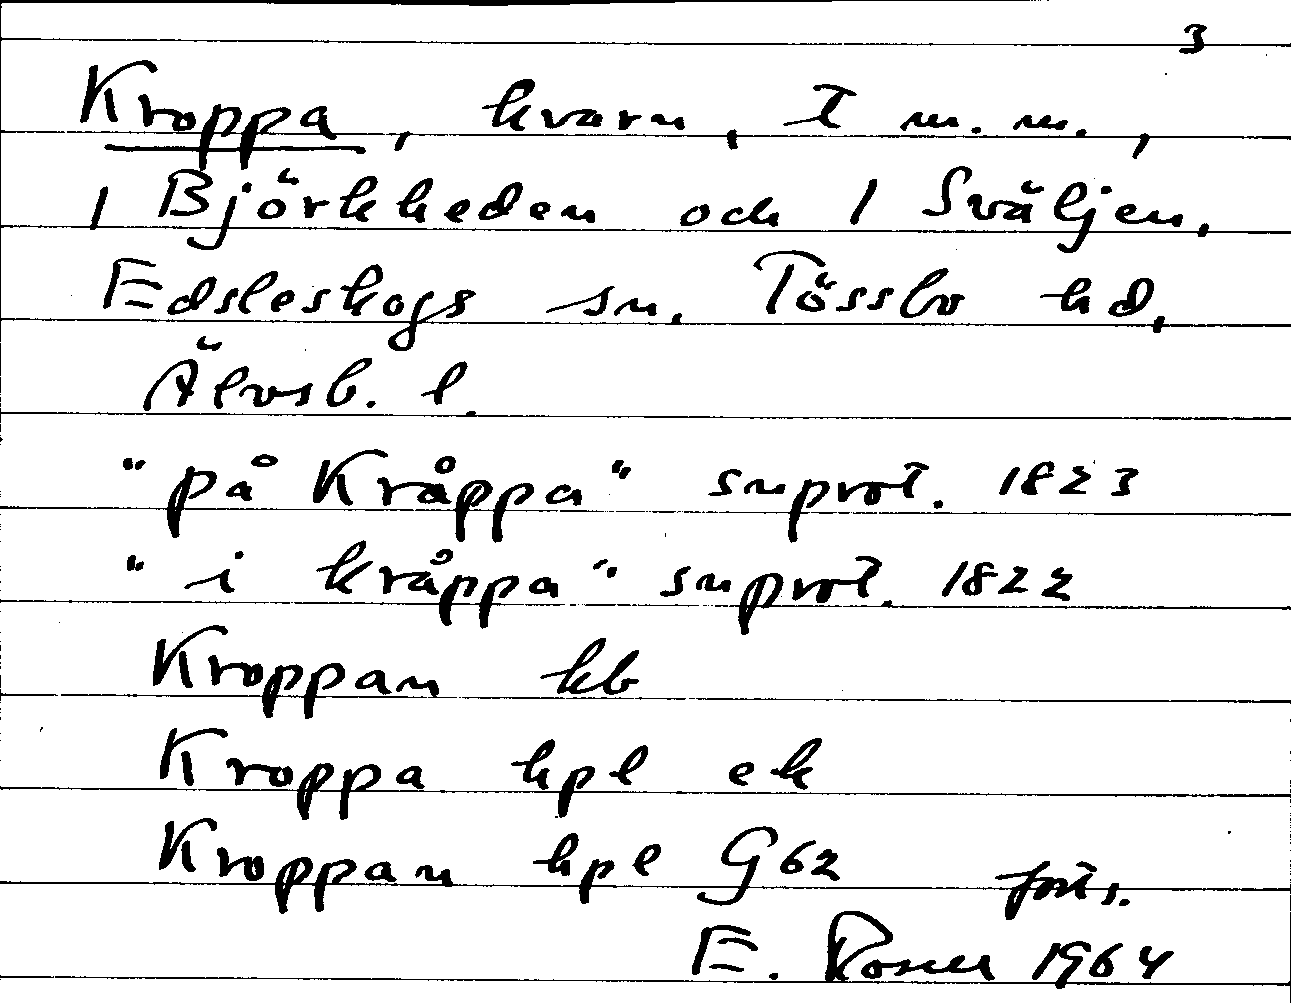 3
Kroppa, kvarn, t m. m.,
1 Björkheden och 1 Sväljen,
Edsleskogs sn. Tössbo hd,
Älvsb. l.
"på Kråppa" snprot. 1823
"i kråppa" snprot. 1822
Kroppan kb
Kroppa hpl ek
Kroppan hpl G62 forts.
E. Rosell 1964